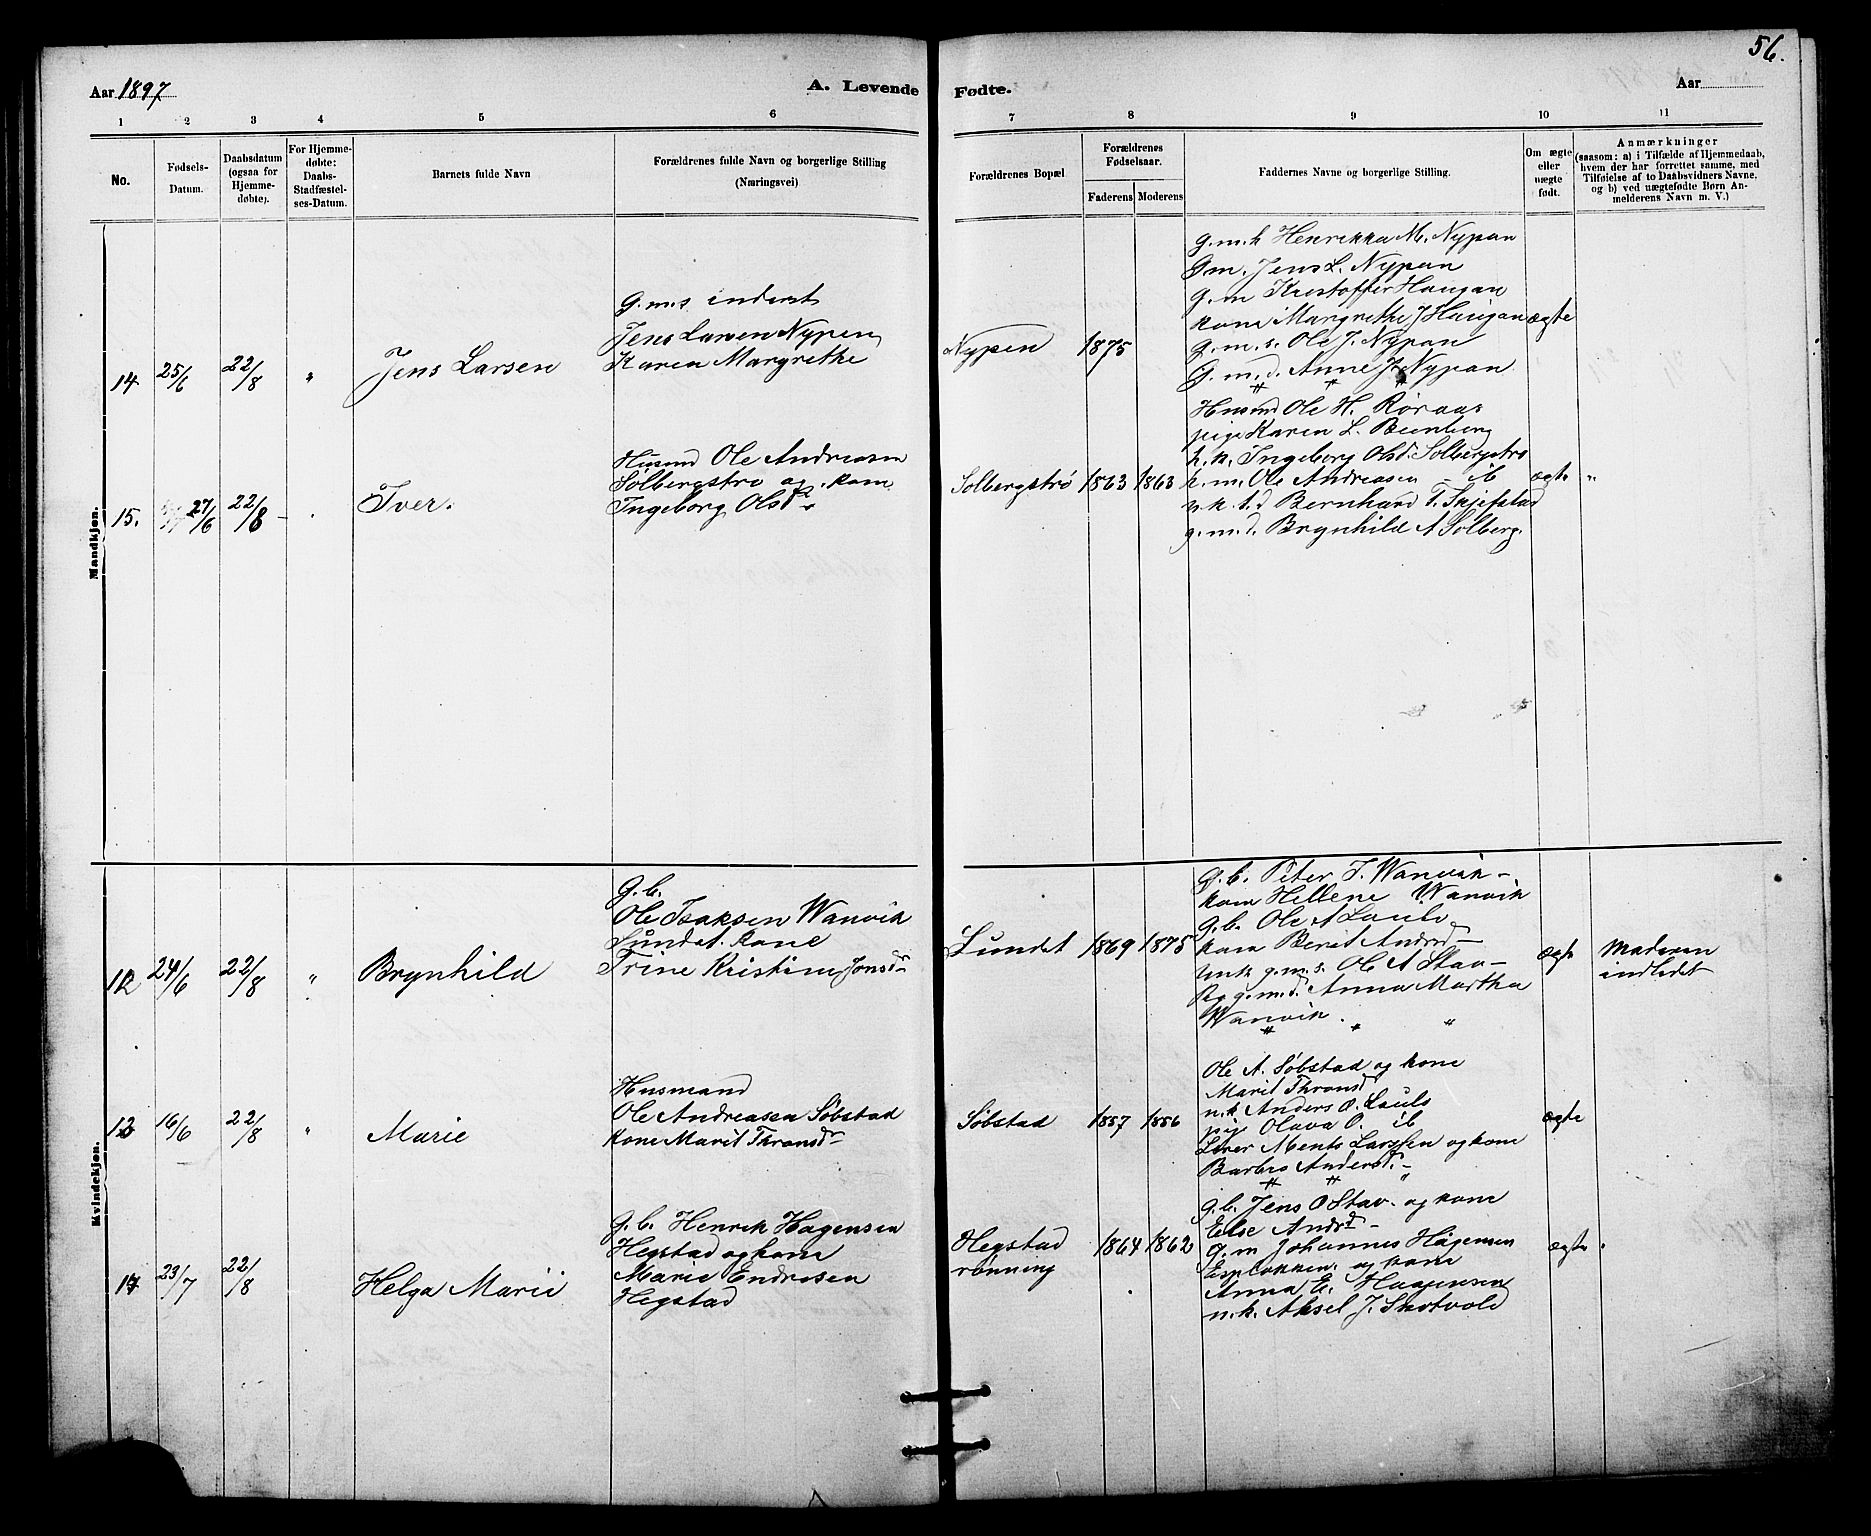 56.
Aar 1897
A. Levende
Fødte.
Aar
1 2 3 4 5 6 7 8 9 10 11
No.
Fødsels-
Datum.
Daabsdatum
(ogsaa for
Hjemme-
døbte).
For Hjemme-
døbte:
Daabs-
Stadfæstel-
ses-Datum.
Barnets fulde Navn
Forældrenes fulde Navn og borgerlige Stilling
(Næringsvei)
Forældrenes Bopæl
Forældrenes
Fødselsaar.
Faderens
Moderens
Faddernes Navne og borgerlige Stilling.
Om ægte
eller
uægte
født.
Anmærkninger
(saasom: a) i Tilfælde af Hjemmedaab,
hvem der har forrettet samme, med
Tilføielse af to Daabsvidners Navne,
og b) ved uægtefødte Børn An-
melderens Navn m. V.)
Mandkjøn.
14 25/6 22/8 " Jens Larsen
G.m.s. inderst
Jens Larsen Nypen
Karen Margrethe
Nypen 1875
g.m.k Henrikka M. Nypan
Gm. Jens L. Nypan
g.m Kristoffer Haugan
kone Margrethe J Haugan
g.m.s. Ole J. Nypan
g.m.d. Anne J. Nypan
ægte
15. 27/6 22/8 - . Iver.
Husmd Ole Andreasen
Solbergstrø og kone
Ingeborg Olsd.
Solbergstrø 1863 1863
Husmd Ole H. Røraas
pige Karen L.
h.k. Ingeborg Olsd. Solbergstrø
h.m. Ole Andreasen - ib
u.k. t.d Bernhard T. Skjefstad
g.m.d. Brynhild A Solberg.
ægte "
Kvindekjøn.
12 24/6 22/8 " Brynhild
G.b.
Ole Isaksen Wanvik
Lundet. Kone
Trine Kristine Jonsd.
Lundet 1869 1875
G.b. Peter I. Wanvik -
kone Hellene Wanvik
g.b. Ole A Laulo
kone Berit Andrsd -
Unk g.m.s. Ole A Stav -
Pg g.m.d. Anna Martha
Wanvik. " "
ægte
Moderen
indledet
13 16/6 22/8 " Marie
Husmand
Ole Andreasen Søbstad
kone Marit Thronsd.
Søbstad 1857 1856
Ole A. Søbstad og kone
Marit Thronsd
u.k Anders O. Laulo
pig Olava O. ib
Lærer Ments Larssen og kone
Barbro Andersd. -
ægte
14 23/7 22/8 Helga Marie
G.b. Henrik Hagensen
Hegstad og kone
Marie Endresen
Hegstad
Hegstad
rønning
1864 1862
g.b. Jens O Stav. og kone
Else Andrsd -
g.m Johannes Hågensen
Espløkken. og kone
Anna E. Haagensen
u.k. Aksel J. Skotvold
ægte